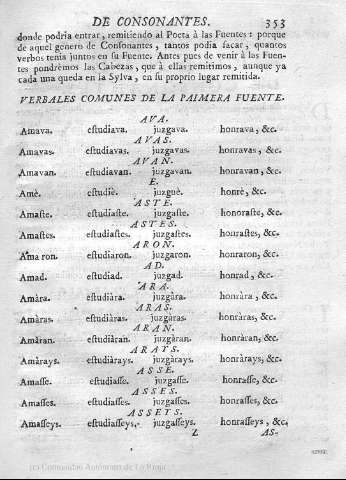 DE CONSONANTES. 353
donde podria entrar, remitiendo al Poeta à las Fuentes: porque
de aquel genero de Consonantes, tantos podia sacar, quantos
verbos tenia juntos en su Fuente. Antes pues de venir à las Fuen-
tes pondrèmos las Cabezas, que à ellas remitimos, aunque ya
cada una queda en la Sylva, en su proprio lugar remitida.
VERBALES COMUNES DE LA PAIMERA FUENTE.
AVA.
Amava. estudiava. juzgava. honrava, &c.
AVAS.
Amavas. estudiavas. juzgavas. honravas, &c.
AVAN.
Amavan. estudiavan. juzgavan. honravan, &c.
E.
Amè. estudiè. juzguè. honrè, &c.
ASTE.
Amaste. estudiaste. juzgaste. honoraste, &c.
ASTES.
Amastes. estudiastes. juzgastes. honrastes, &c.
ARON.
Ama ron. estudiaron. juzgaron. honraron, &c.
AD.
Amad. estudiad. juzgad. honrad, &c.
ARA.
Amàra. estudiàra. juzgàra. honràra, &c.
ARAS.
Amàras. estudiàras. juzgàras. honràras, &c.
ARAN.
Amàran. estudiàran. juzgàran. honràran, &c.
ARAYS.
Amàrays. estudiàrays. juzgàrays. honràrays, &c.
ASSE.
Amasse. estudiasse. juzgasse. honrasse, &c.
ASSES.
Amasses. estudiasses. juzgasses. honrasses, &c.
ASSEYS.
Amasseys. estudiasseys. juzgasseys. honrasseys, &c.
Z AS-
(c) Comunidad Autónoma de La Rioja